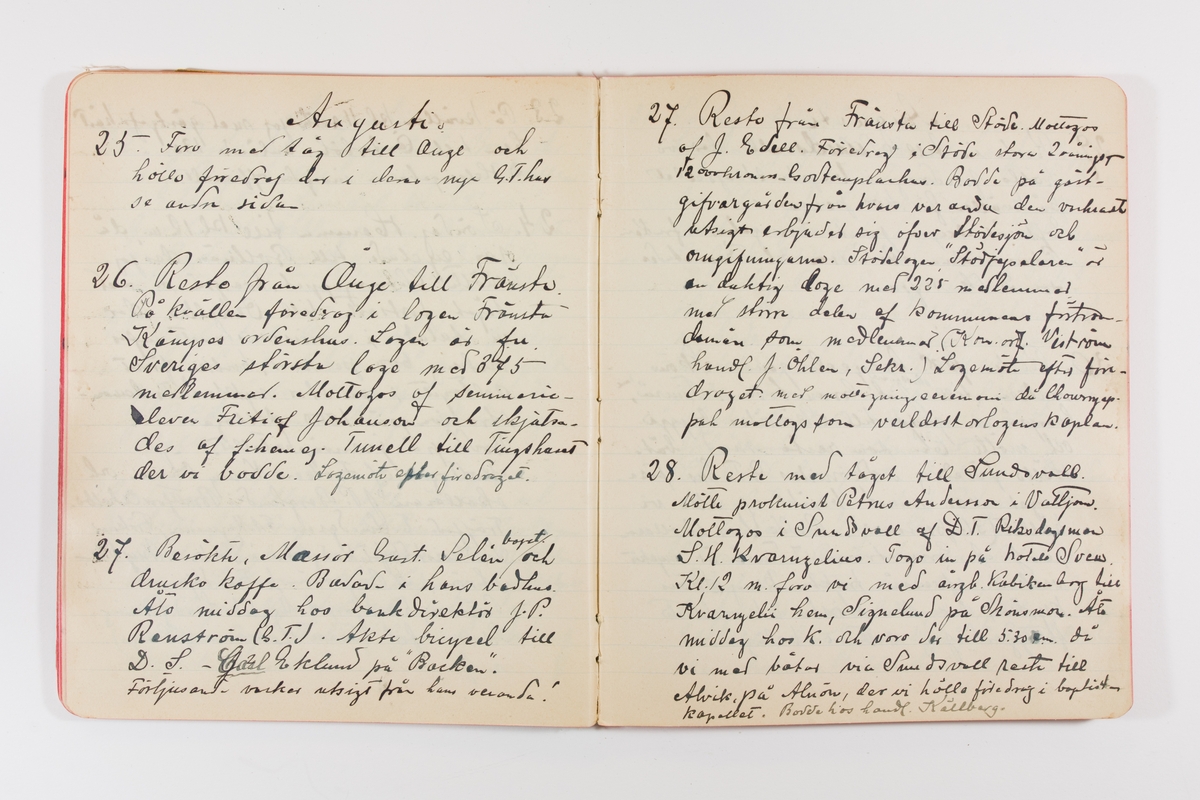 Augusti.
25. Foro med tåg till Ånge och
höllo föredrag der i deras nya G.T.hus
se andra sidan
26. Reste från Ånge till Fränsta.
På kvällen föredrag i logen Fränsta
Kämpes ordenshus. Logen är fn.
Sveriges största loge med 375
medlemmar. Mottogos af seminarie-
eleven Fritiof Johanson och skjutsa-
des af Tunell till Tingshuset
der vi bodde. Logemöte efter föredraget.
27. Besökte, Massör Gust. Selén och
baget.
drucko kaffe. Badade i hans badhus.
Åto middag hos bankdirektör J.P.
Renström (G.T.). Åkte bicycel till
D. S. - Eklund på "Backen".
Förtjusande vacker utsigt från hans veranda!
27. Resto från Fränsta till Stöde. Mottogos
af J. Edell. Föredrag i Stöde stora 2 vånings
12 000 kronors Godtemplarhus. Bodde på gäst-
gifvargården från hvars veranda den vackraste
utsigt erbjuder sig öfver Stödesjön och
omgifningarna. Stödelogen "Stödjepelaren" är
en duktig loge med 225 medlemmar
med större delen af kommunens förtroen-
demän som medlemmar (Kom. ordf. Viström
handl. J. Öhlén, Sekr.) Logemöte efter före-
draget med mottagningsceremoni då Chowryap-
pah mottogs som verldsstorlogens kaplan.
28. Reste med tåget till Sundsvall.
Mötte prokurist Petrus Andersson i Vattjom.
Mottogos i Sundsvall af D.T. Riksdagsman
S. H. Kvarnzelius. Togo in på hotell Svea.
Kl. 12 m. foro vi med ångb. Kubikenborg till
Kvarnzelii hem, Signelund på Skönsmon. Åto
middag hos K. och voro der till 5.30 em. då
vi med båtar via Sundsvall reste till
Alvik, på Alnön, der vi höllo föredrag i baptist
kapellet. Bodde hos handl. Källberg.